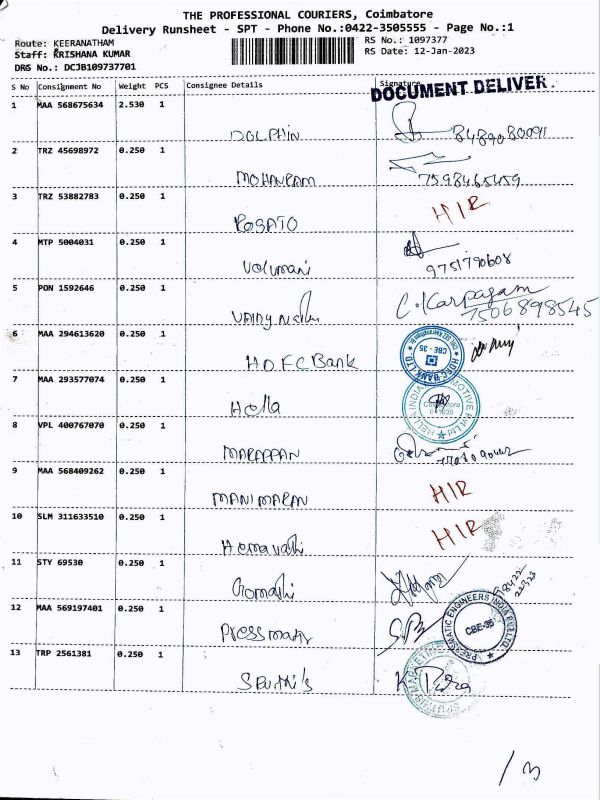 THE PROFESSIONAL COURIERS, Coimbatore
Delivery Runsheet - SPT - Phone No.:0422-3505555 - Page No.:1
Route: KEERANATHAM RS No.: 1097377
Staff: KRISHANA KUMAR RS Date: 12-Jan-2023
DRS No.: DCJB109737701
S No Consignment No Weight PCS Consignee Details Signature
DOCUMENT DELIVER.
1 MAA 568675634 2.530 1
DOLPHIN 8489080091
2 TRZ 45698972 0.250 1
MOHANRAM 7598465459
3 TRZ 53882783 0.250 1
ROSATO H/R
4 MTP 5004031 0.250 1
Velumani 9751790608
5 PON 1592646 0.250 1
C. Karpagam
7506898545
6 MAA 294613620 0.250 1
HDFC Bank HDFC BANK LTD CBE - 35
7 MAA 293577074 0.250 1
Hella Coimbatore
8 VPL 400767070 0.250 1
MARAPPAN
9 MAA 568409262 0.250 1
MANIMARAN H/R
10 SLM 311633510 0.250 1
Hemavathi H/R
11 STY 69530 0.250 1
Gomathi
12 MAA 569197401 0.250 1
Pressmatic PRESSMATIC ENGINEERS INDIA PVT LTD. CBE-35
13 TRP 2561381 0.250 1